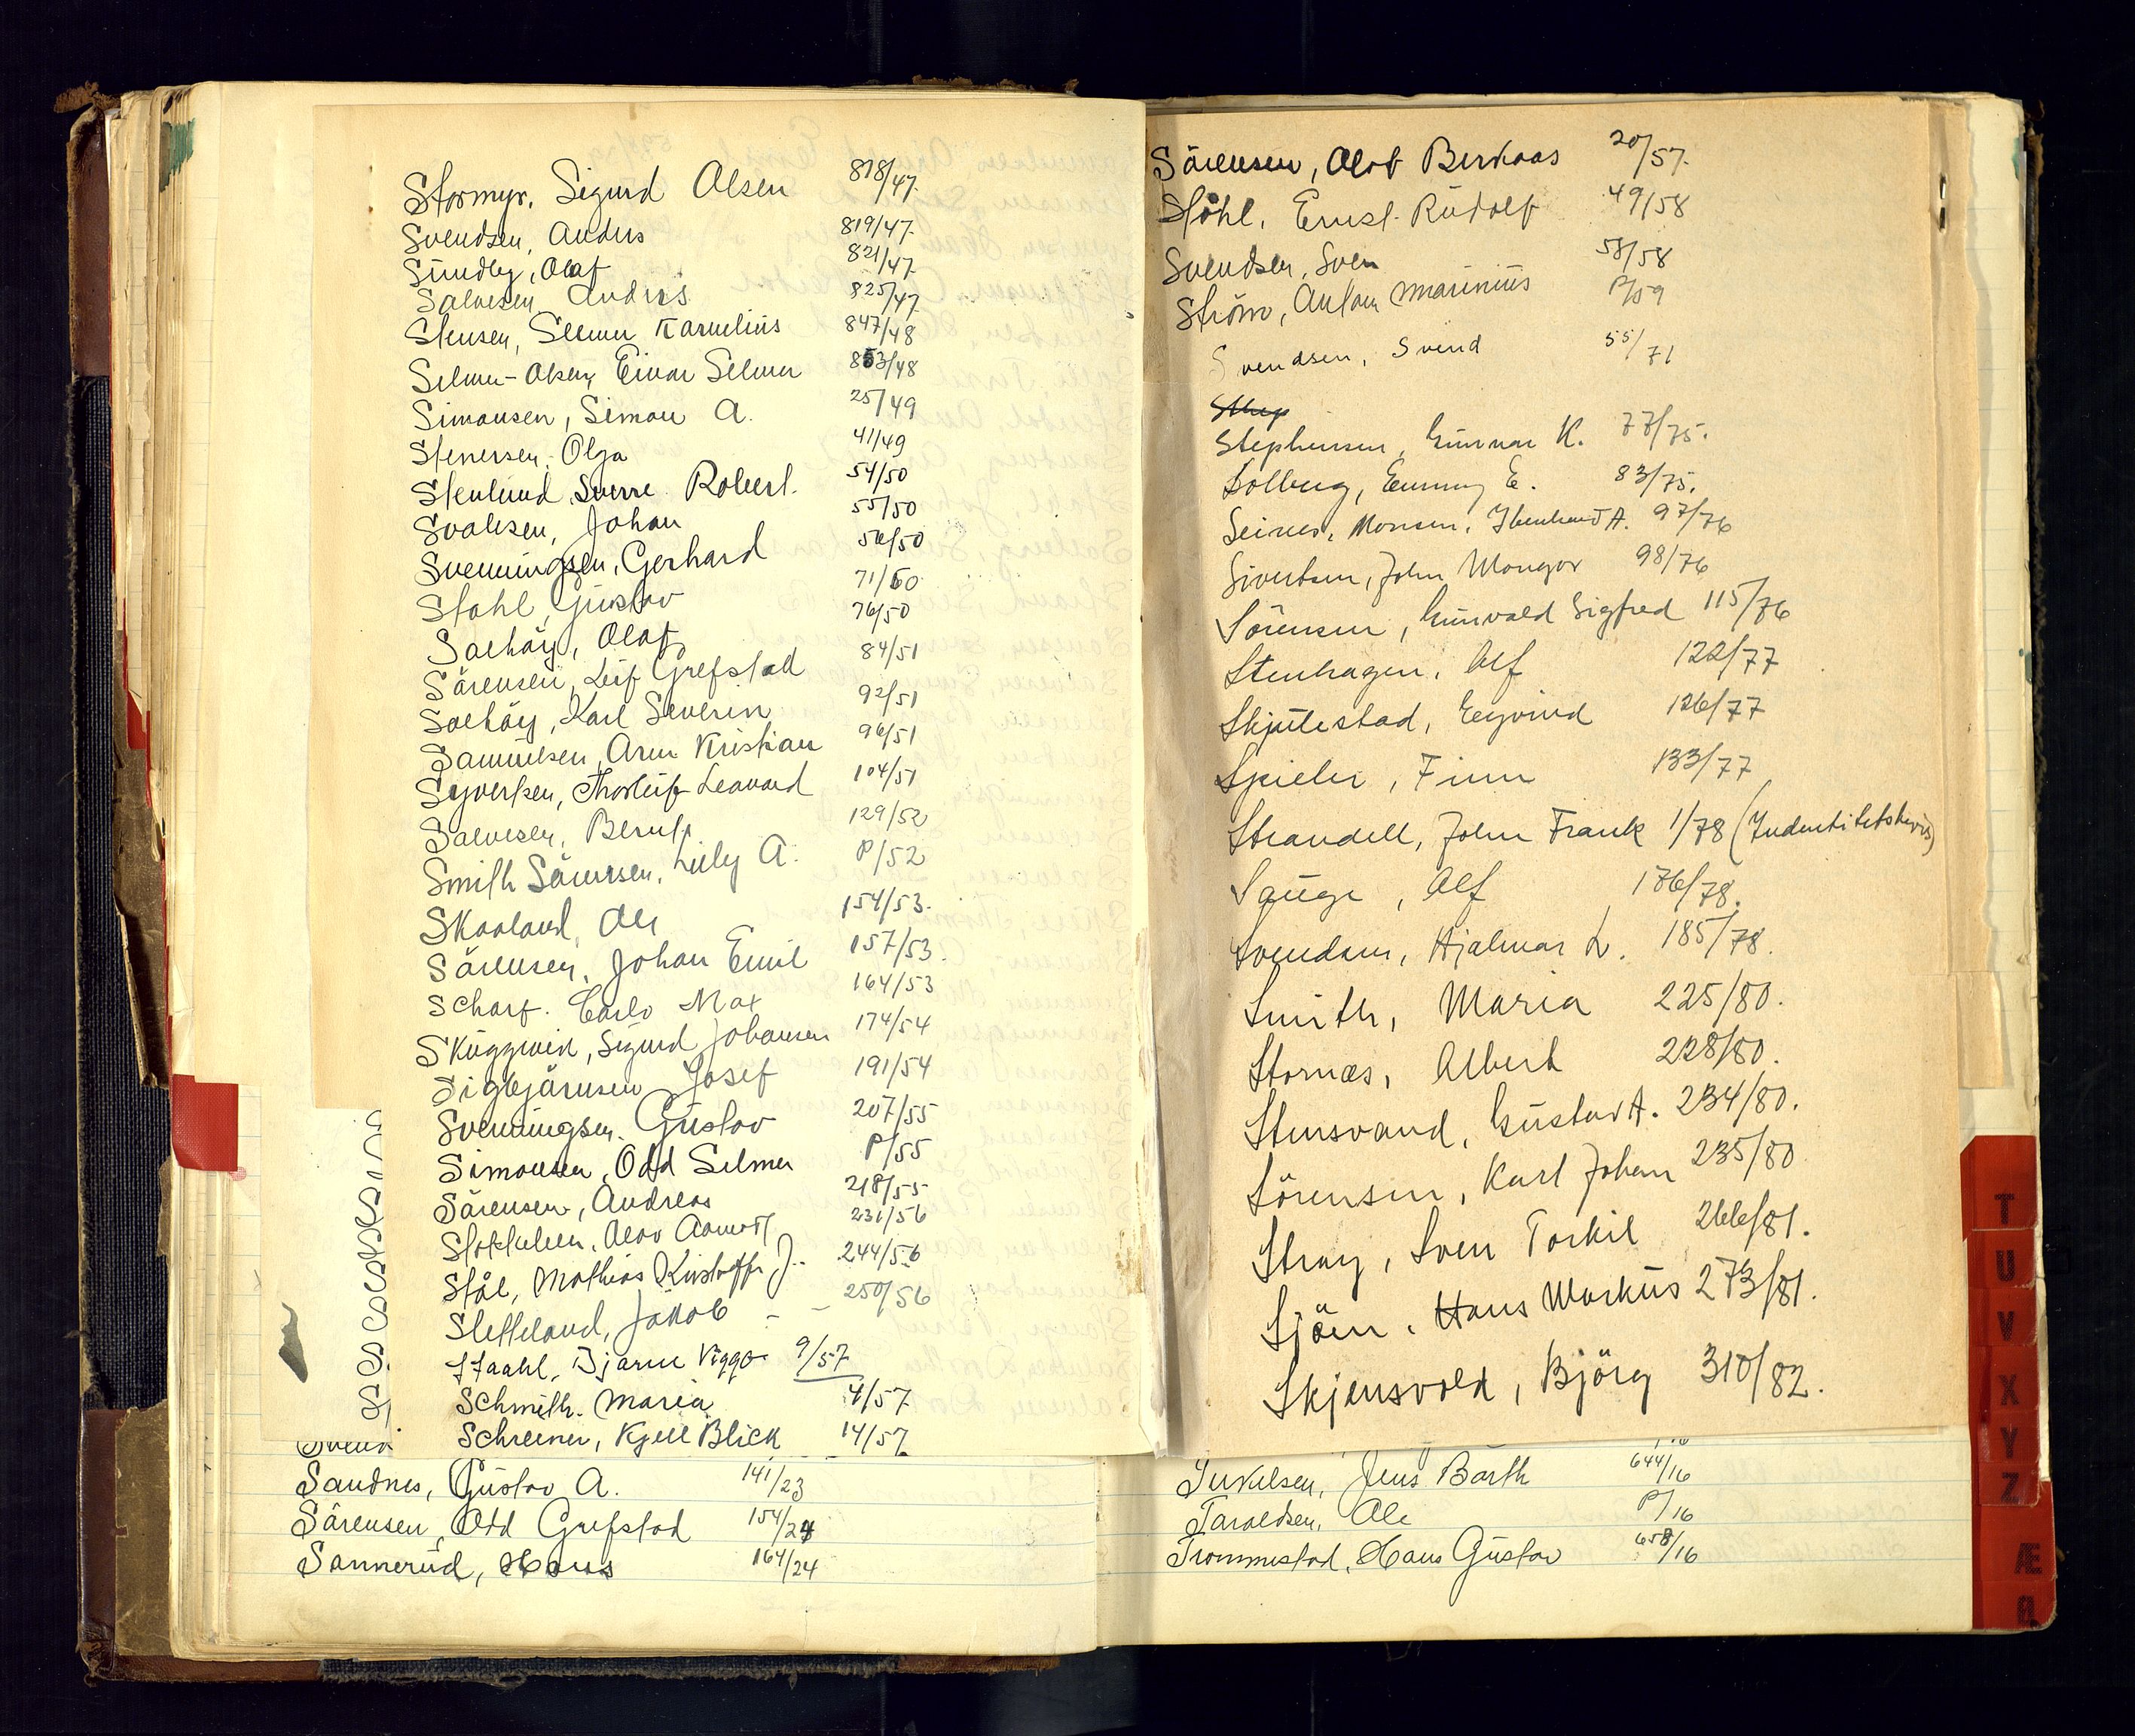 Stormyr, Sigurd Olsen 818/47.
Svendsen, Anders 819/47.
Sundby, Olaf 821/47.
Salvesen, Anders 825/47.
Stensen, Selmer Kornelius 847/48
Selmer-Olsen, Einar Selmer 853/48
Simonsen, Simon A. 25/49
Stenersen, Olga 41/49
Stenlund, Sverre Robert. 54/50
Svalesen, Johan 55/50
Svenningsen, Gerhard 56/50
Stahl, Gustav 71/50
Solhöy, Olaf 76/50
Sörensen, Leif Grefstad 84/51
Solhöy, Karl Severin 92/51
Samuelsen, Arne Kristian 96/51
Syvertsen, Thorleif Leonard 104/51
Salvesen, Bernt 129/52
Smith Sörensen, Lilly A. P/52
Skaaland, Ole 154/53.
Sörensen, Johan Emil 157/53.
Scharf. Carlo Max 164/53
Skuggevik, Sigurd Johansen 174/54
Sigbjörnsen Josef 191/54
Svenningsen. Gustav 207/55
Simonsen, Odd Selmer P/55
Sörensen, Andreas 218/55
Stokkelien, Olav Aamodt 231/56
Stål, Mathias Kristoffer J.. 244/56
Sletteland, Jakob - - 250/56
Staahl, Bjarne Viggo 9/57
Schmith. Maria 4/57
Schreiner, Kjell Blick 14/57
Svend
Sandnes, Gustav A. 141/23
Sörensen, Odd Grefstad 154/24
Sannerud, Hans 164/24
Sörensen, Olav Berkaas 20/57.
Stöhl, Ernst Rudolf 49/58
Svendsen, Sven 58/58
Ström, Anton Marinius P/59
Svendsen, Svend 55/71
Step
Stephensen, Gunnar K. 77/75.
Solberg, Emmy E. 83/75.
Seines, Monsen, A. 97/76
Sivertsen, John Wongor 98/76
Sörensen, Gunvald Sigfred 115/76
Stenhagen, Alf 122/77
Skjulestad, Eyvind 126/77
Spieler, Finn 133/77
Strandell, John Frank 1/78 (Indentitetsbevis)
Sauge, Alf 176/78.
Svendsen, Hjalmar L. 185/78.
Smith, Maria 225/80.
Stornæs, Albert 228/80.
Stensvand, Gustav A. 234/80.
Sörensen, Karl Johan 235/80
Stray, Sven Torkil 266/81.
Sjöen, Hans Markus 273/81.
Skjensvold, Björg 310/82.
Terkelsen, Jens Barth 644/16
Taraldsen, Ole P/16
Trommestad, Hans Gustav 658/16
T
U
V
X
Y
Z
Æ
Ø